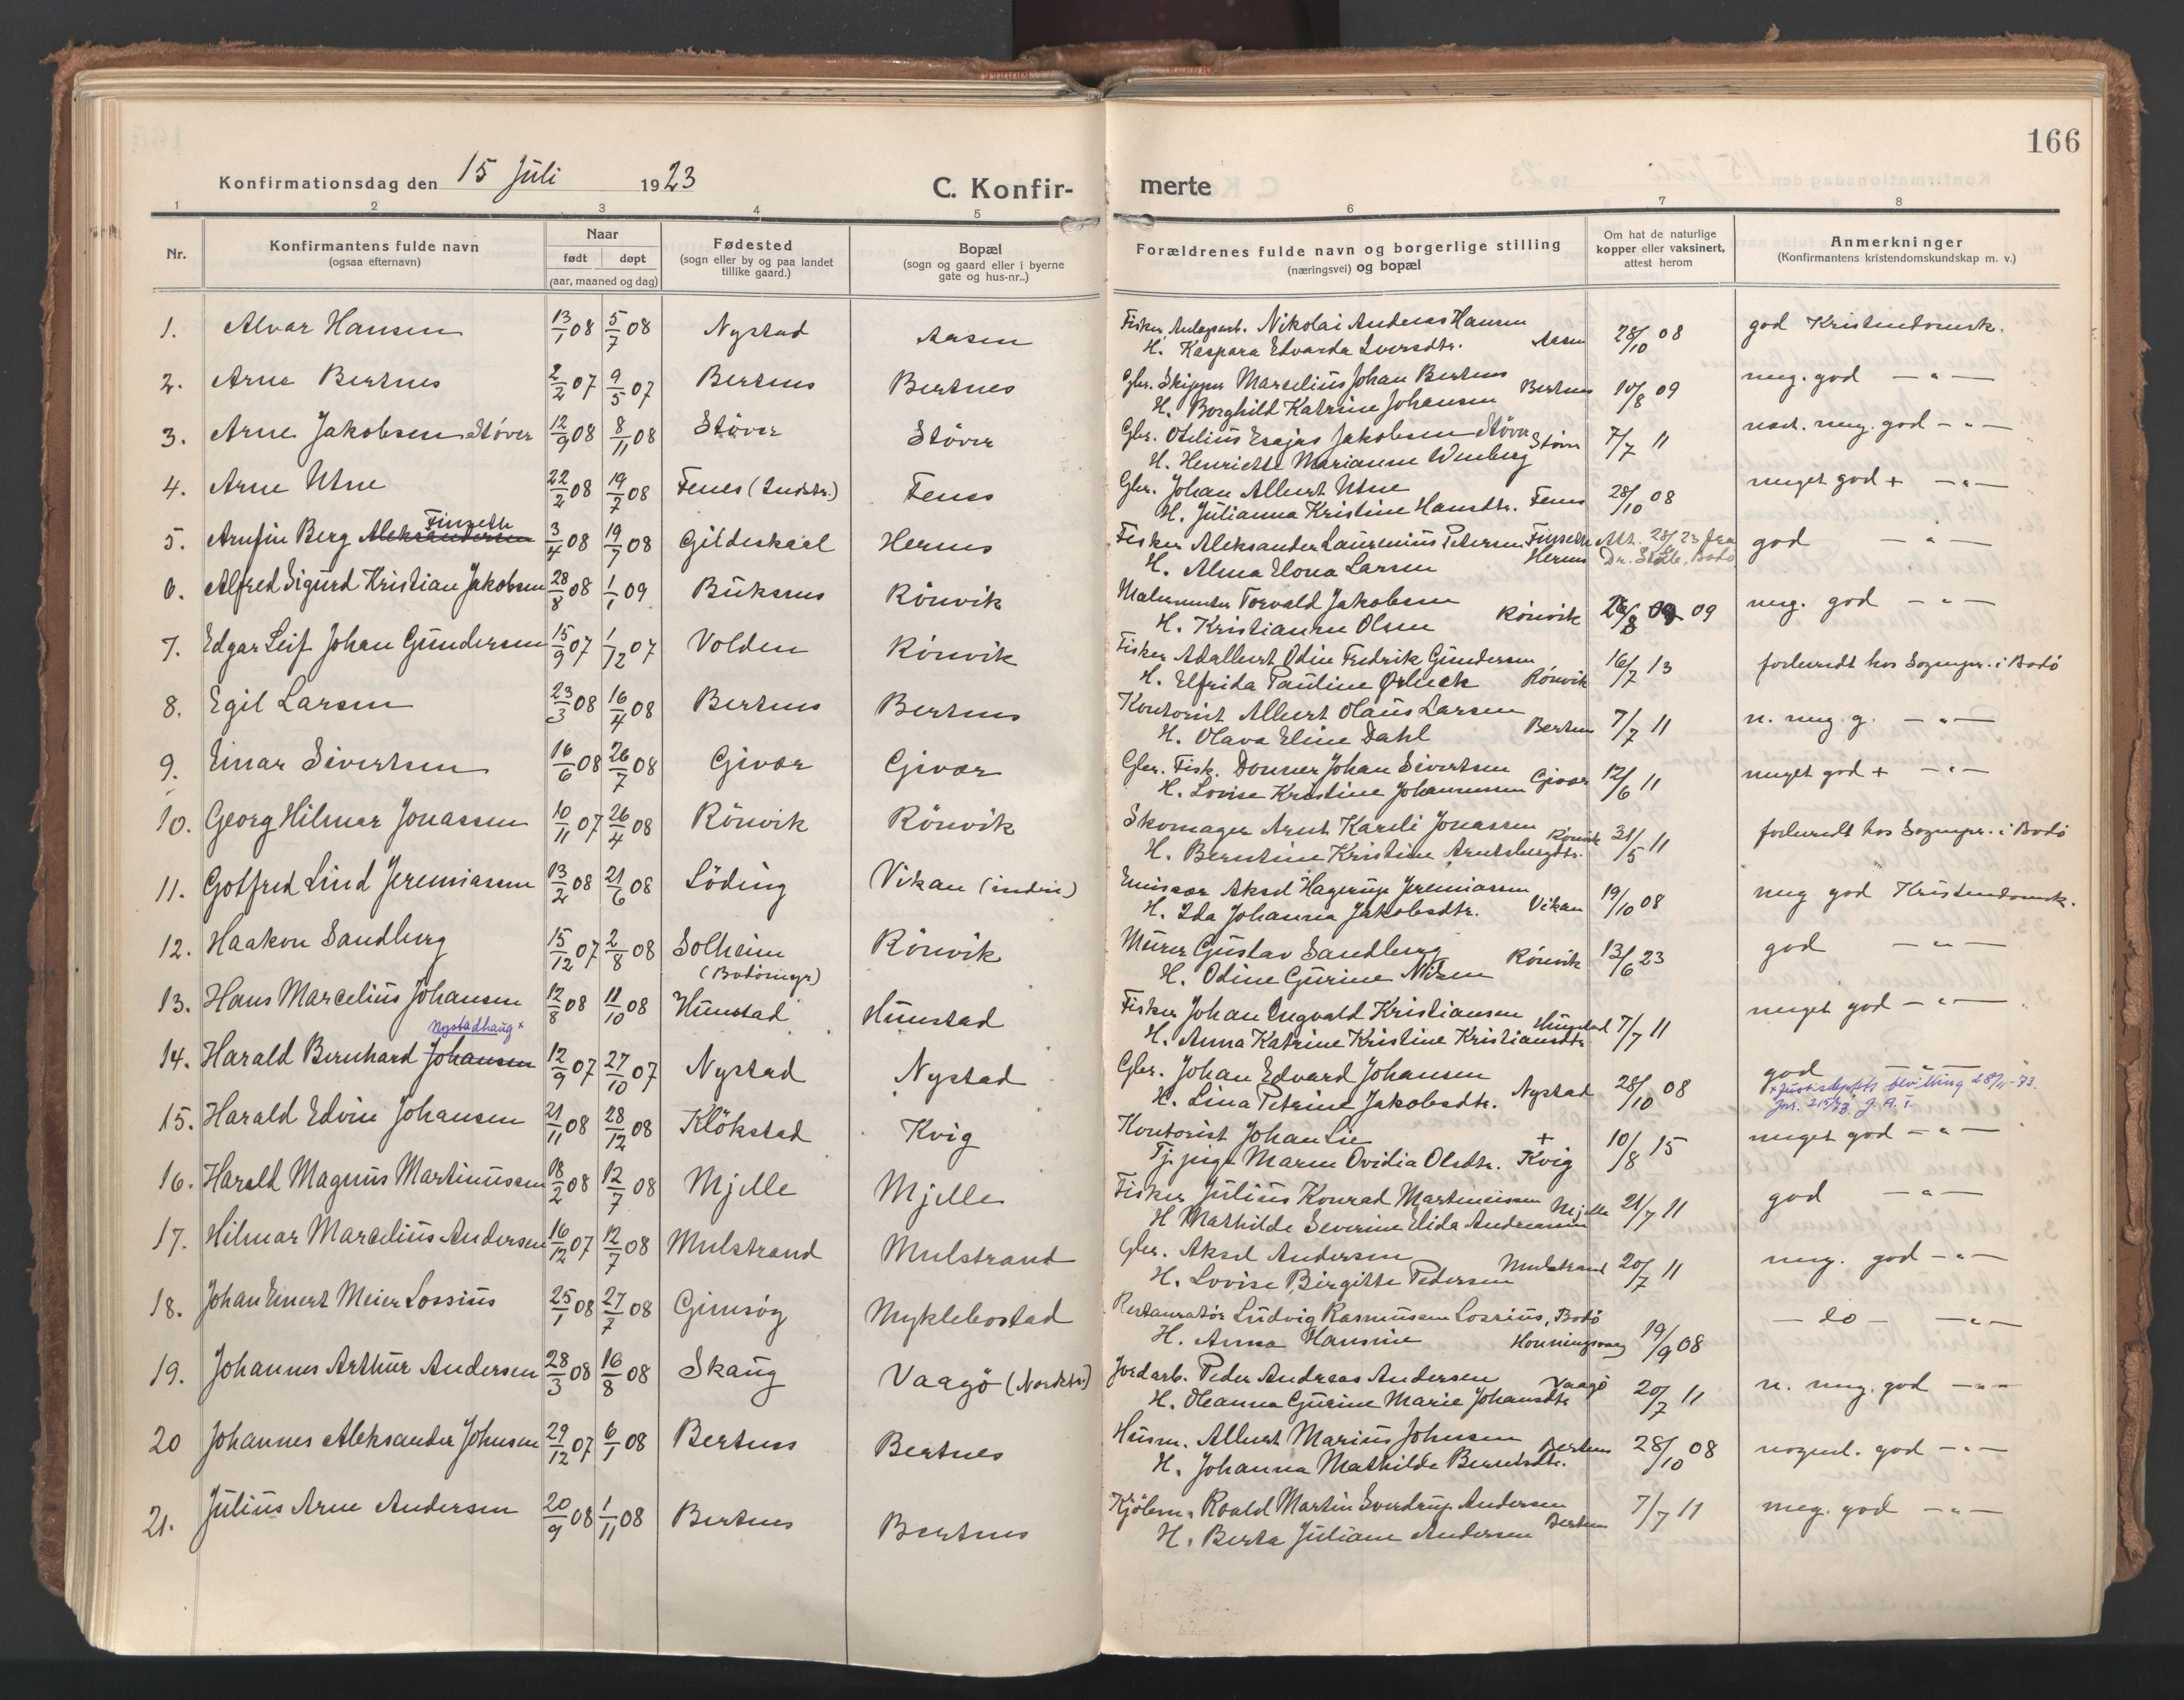 166
Konfirmationsdag den 15 Juli 1923
C. Konfir- merte
1 2 3 4 5 6 7 8
Nr.
Konfirmantens fulde navn
(ogsaa efternavn)
Naar
født døpt
(aar, maaned og dag)
Fødested
(sogn eller by og paa landet
tillike gaard.)
Bopæl
(sogn og gaard eller i byerne
gate og hus-nr..)
Forældrenes fulde navn og borgerlige stilling
(næringsvei) og bopæl
Om hat de naturlige
kopper eller vaksinert,
attest herom
Anmerkninger
(Konfirmantens kristendomskundskap m. v.)
1. Alvar Hansen 13/1 08 5/7 08 Nystad Aasen Fisker, Anlegsarb. Nikolai Andreas Hansen
H. Kaspara Edvarda Iversdtr. Aasen 28/10 08 god Kristendomsk.
2. Arne Bertnes 2/2 07 9/5 07 Bertnes Bertnes Gbr. Skipper Marselius Johan Bertnes
H. Borghild Katrine Johansen Bertnes 10/8 09 meg. god — " —
3. Arne Jakobsen Støver 12/9 08 8/11 08 Støver Støver Gbr. Otelius Esajas Jakobsen Støver
H. Henriette Marianne Wenberg Støver 7/7 11 meg. god — " —
4. Arne Utne 22/2 08 19/7 08 Fenes (Indstr.) Fenes Gbr. Johan Albert Utne
H. Julianna Kristine Hansdtr. Fenes 28/10 08 meget god + — " —
5. Arnfin Berg Aleksandersen Finseth 3/4 08 19/7 08 Gildeskaal Hernes Fisker Aleksander Laurenius Petersen Finseth
H. Alma Elona Larsen Hernes Att. 28/6 23 fra
Dr. Stølle, Bodø god — " —
6. Alfred Sigurd Kristian Jakobsen 28/8 08 1/1 09 Buksnes Rönvik Malermester Torvald Jakobsen
H. Kristianne Olsen Rönvik 26/8 09 09 meg. god — " —
7. Edgar Leif Johan Gundersen 15/9 07 1/12 07 Volden Rönvik Fisker Adalbert Odin Fredrik Gundersen
H. Elfrida Pauline Ørbeck Rönvik 16/7 13 forberedt hos Sognepr. i Bodö
8. Egil Larsen 23/3 08 16/4 08 Bertnes Bertnes Kontorist Albert Olaus Larsen
H. Olava Eline Dahl Bertnes 7/7 11 n. meg. g. — " —
9. Einar Sivertsen 16/6 08 26/7 08 Givær Givær Gbr. Fisk. Donner Johan Sivertsen
H. Lovise Kristine Johannessen Givær 12/6 11 meget god + — " —
10. Georg Hilmar Jonassen 10/11 07 26/4 08 Rönvik Rönvik Skomager Arnt Kareli Jonassen
H. Berntine Kristine Arntsbergdtr. Rönvik 31/5 11 forberedt hos Sognepr. i Bodö
11. Gotfred Lind Jeremiassen 13/2 08 21/6 08 Löding Vikan (indre) Emissær Aksel Hagerup Jeremiassen
H. Ida Johanna Jakobsdtr. Vikan 19/10 08 meg god Kristendomsk.
12. Haakon Sandberg 15/12 07 2/8 08 Solheim
(Bodömyr) Rönvik Murer Gustav Sandberg
H. Odine Gurine Nilsen Rönvik 13/6 23 god — " —
13. Hans Marcelius Johansen 12/8 08 11/10 08 Hunstad Hunstad Fisker Johan Ingvald Kristiansen
H. Anna Katrine Kristine Kristiansdtr. Hunstad 7/7 11 meget god — " —
14. Harald Bernhard Johansen Nystadhaug x 12/9 07 27/10 07 Nystad Nystad Gbr. Johan Edvard Johansen
H. Lina Petrine Jakobsdtr. Nystad 28/10 08 god — " —
x Justisdeptets bevilling 28/11-73.
Jnr. 215/73. J. A. T.
15. Harald Edvin Johansen 21/11 08 28/12 08 Klökstad Kvig Kontorist Johan Lie +
Tj. pige Maren Ovidia Olsdtr. Kvig 10/8 15 meget god — " —
16. Harald Magnus Martinussen 18/2 08 12/7 08 Mjelle Mjelle Fisker Julius Konrad Martinussen
H Mathilde Severine Elida Andreassen Mjelle 21/7 11 god — " —
17. Hilmar Marcelius Andersen 16/12 07 12/7 08 Mulstrand Mulstrand Gbr. Aksel Andersen
H. Lovise Birgitte Pedersen Mulstrand 20/7 11 meg. god — " —
18. Johan Einert Meier Lossius 25/1 08 27/7 08 Gimsöy Myklebostad Restauratör Ludvig Rasmussen Lossius, Bodö
H. Anna Hansine Honningsvaag 19/9 08 — do — — " —
19. Johannes Arthur Andersen 28/3 08 16/8 08 Skaug Vaagö (Nordstr.) Jordarb. Peder Andreas Andersen
H. Oleanna Gurine Marie Johansdtr. Vaagö 20/7 11 n. meg. god — " —
20 Johannes Aleksander Johnsen 29/12 07 6/1 08 Bertnes Bertnes Husm. Albert Marius Johnsen
H. Johanna Mathilde Berntsdtr. Bertnes 28/10 08 nogenl. god — " —
21. Julius Arne Andersen 20/9 08 1/11 08 Bertnes Bertnes Kjölem. Roald Martin Sverdrup Andersen
H. Berta Juliane Andersen Bertnes 7/7 11 meg. god — " —